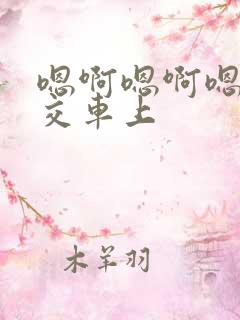 嗯啊嗯啊嗯
交車上
木羊羽